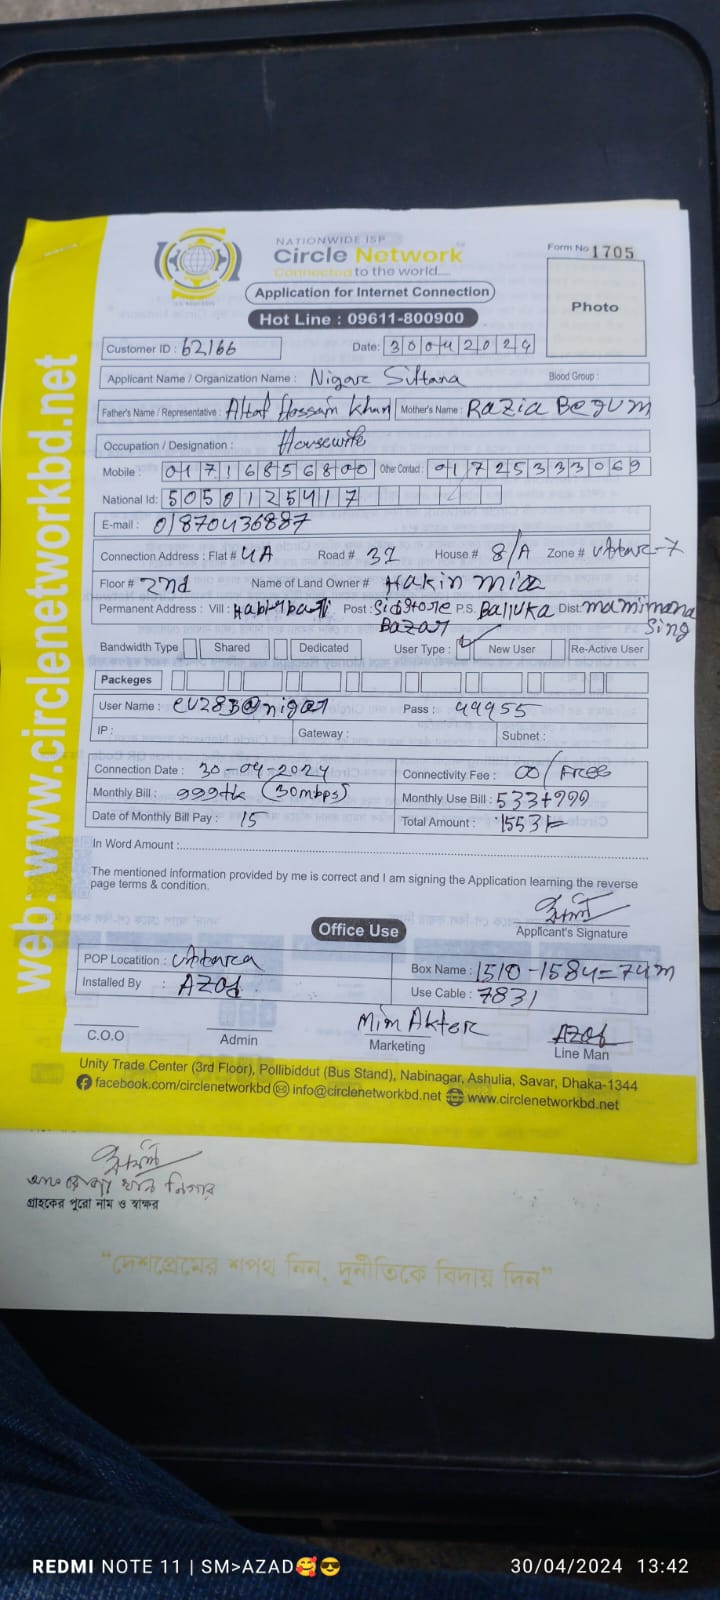 NATIONWIDE ISP
Circle Network
Connected to the world....
Form No 1705
Application for Internet Connection
Photo
Hot Line : 09611-800900
Customer ID : 62166 Date: 30042024
Applicant Name / Organization Name : Nigar Sultana Blood Group :
Father's Name / Representative : Altaf Hossain Khan Mother's Name : Razia Begum
Occupation / Designation : Housewife
Mobile : 01716856800 Other Contact : 01725333069
National Id: 5050125417
E-mail : 01870436887
Connection Address : Flat # 4A Road # 32 House # 8/A Zone # Uttara-7
Floor # 2nd Name of Land Owner # Hakin mia
Permanent Address : Vill : Post : Sidstore Bazar P.S. Balluka Dist: mamimana Sing
Bandwidth Type Shared Dedicated User Type : New User Re-Active User
Packeges
User Name : Pass : 49955
IP : Gateway : Subnet :
Connection Date : 30-04-2024 Connectivity Fee : 00/Free
Monthly Bill : 999tk (30mbps) Monthly Use Bill : 533+999
Date of Monthly Bill Pay : 15 Total Amount : 1553/=
In Word Amount :
The mentioned information provided by me is correct and I am signing the Application learning the reverse
page terms & condition.
Applicant's Signature
Office Use
POP Locatition : Uttara Box Name : 1510-1584=74m
Installed By : AZAd Use Cable : 7831
C.O.O Admin Mim Akter Marketing AZAd Line Man
Unity Trade Center (3rd Floor), Pollibiddut (Bus Stand), Nabinagar, Ashulia, Savar, Dhaka-1344
facebook.com/circlenetworkbd info@circlenetworkbd.net www.circlenetworkbd.net
web: www.circlenetworkbd.net
গ্রাহকের পুরো নাম ও স্বাক্ষর
“দেশপ্রেমের শপথ নিন, দুর্নীতিকে বিদায় দিন”
REDMI NOTE 11 | SM>AZAD🥰😎 30/04/2024 13:42